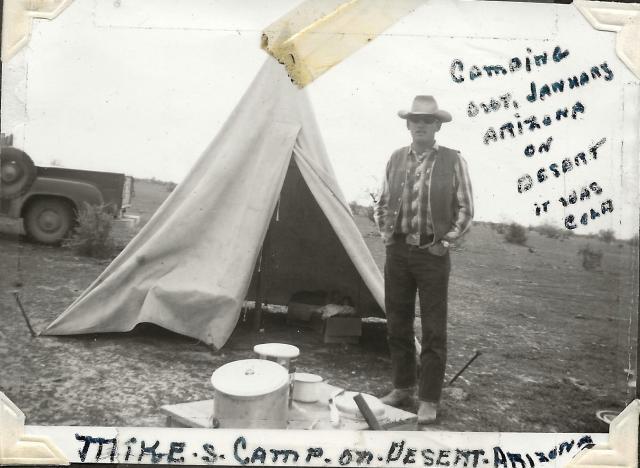 Camping
out, January
Arizona
on
Desert
it was
Cold
Mike.s. Camp. on. Desert. Arizona